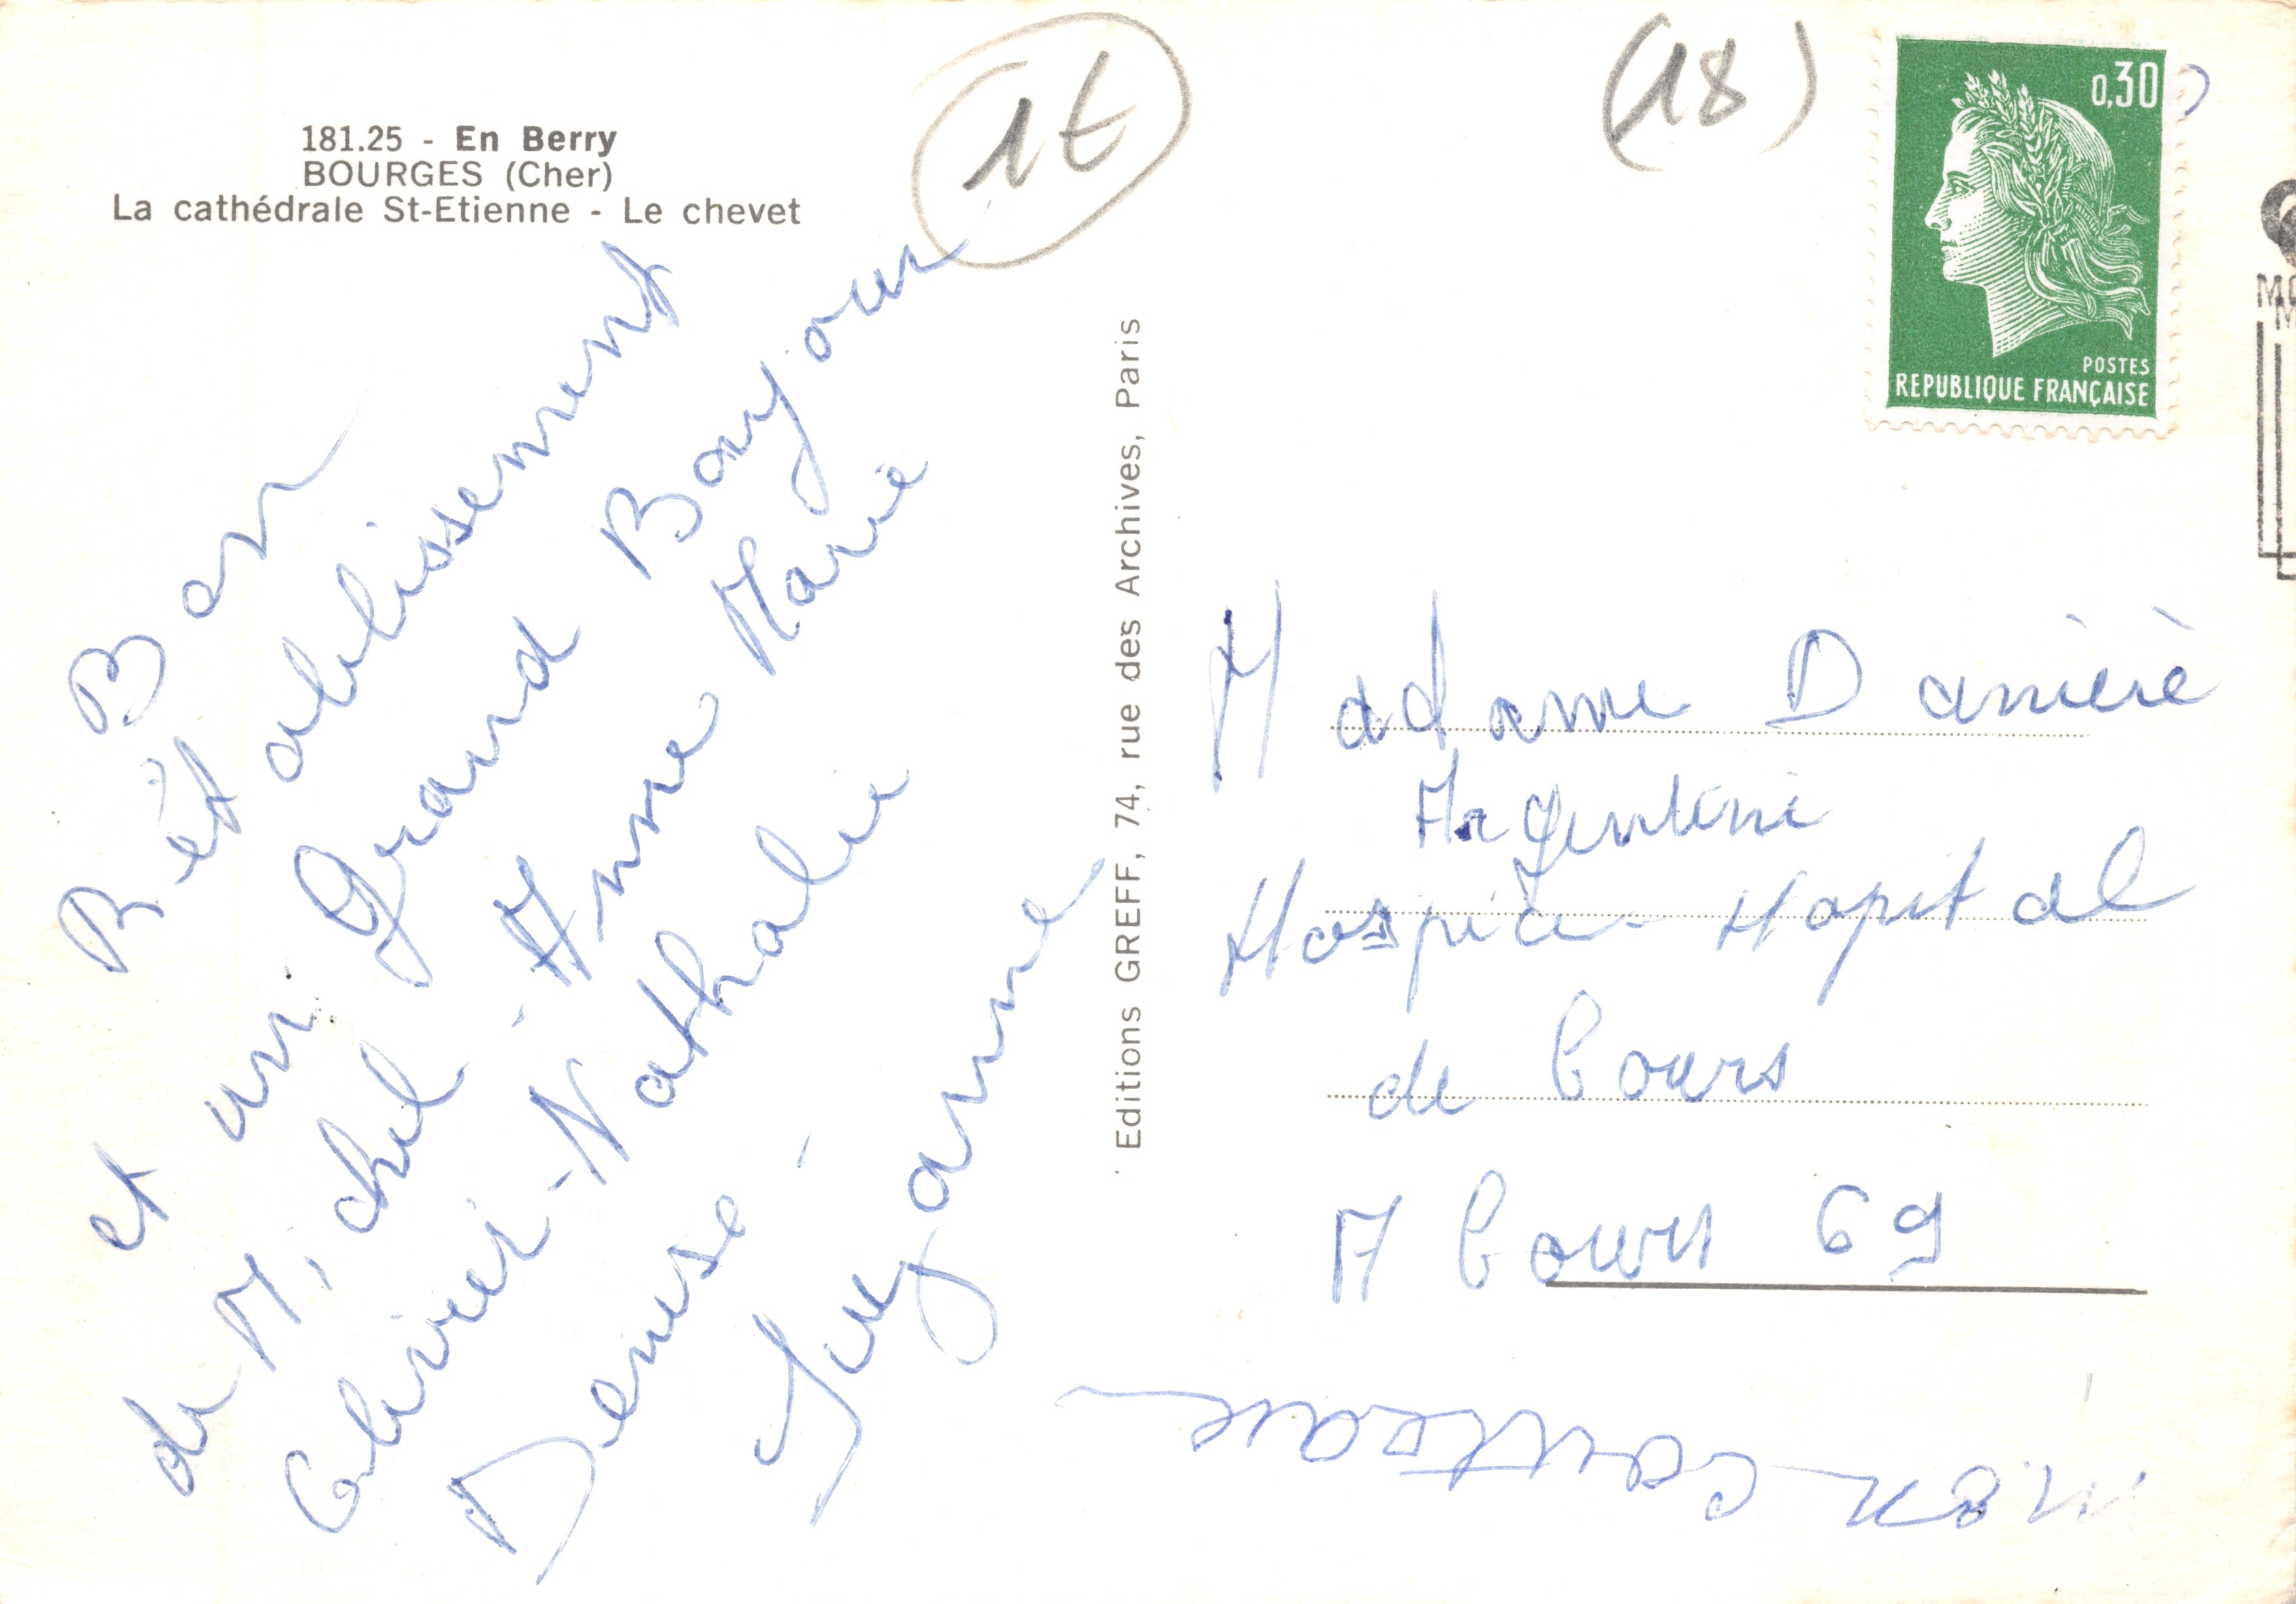 181.25 - En Berry
BOURGES (Cher)
La cathédrale St-Etienne - Le chevet
1€
(18)
0,30
POSTES
REPUBLIQUE FRANÇAISE
Bon
Rétablissement
et un Grand Bonjour
de Michel - Anne Marie
Olivier - Nathalie
Denise
Suzanne
Editions GREFF, 74, rue des Archives, Paris
Madame Danière
Argentine
Hospice - Hopital
de Cours
A Cours 69